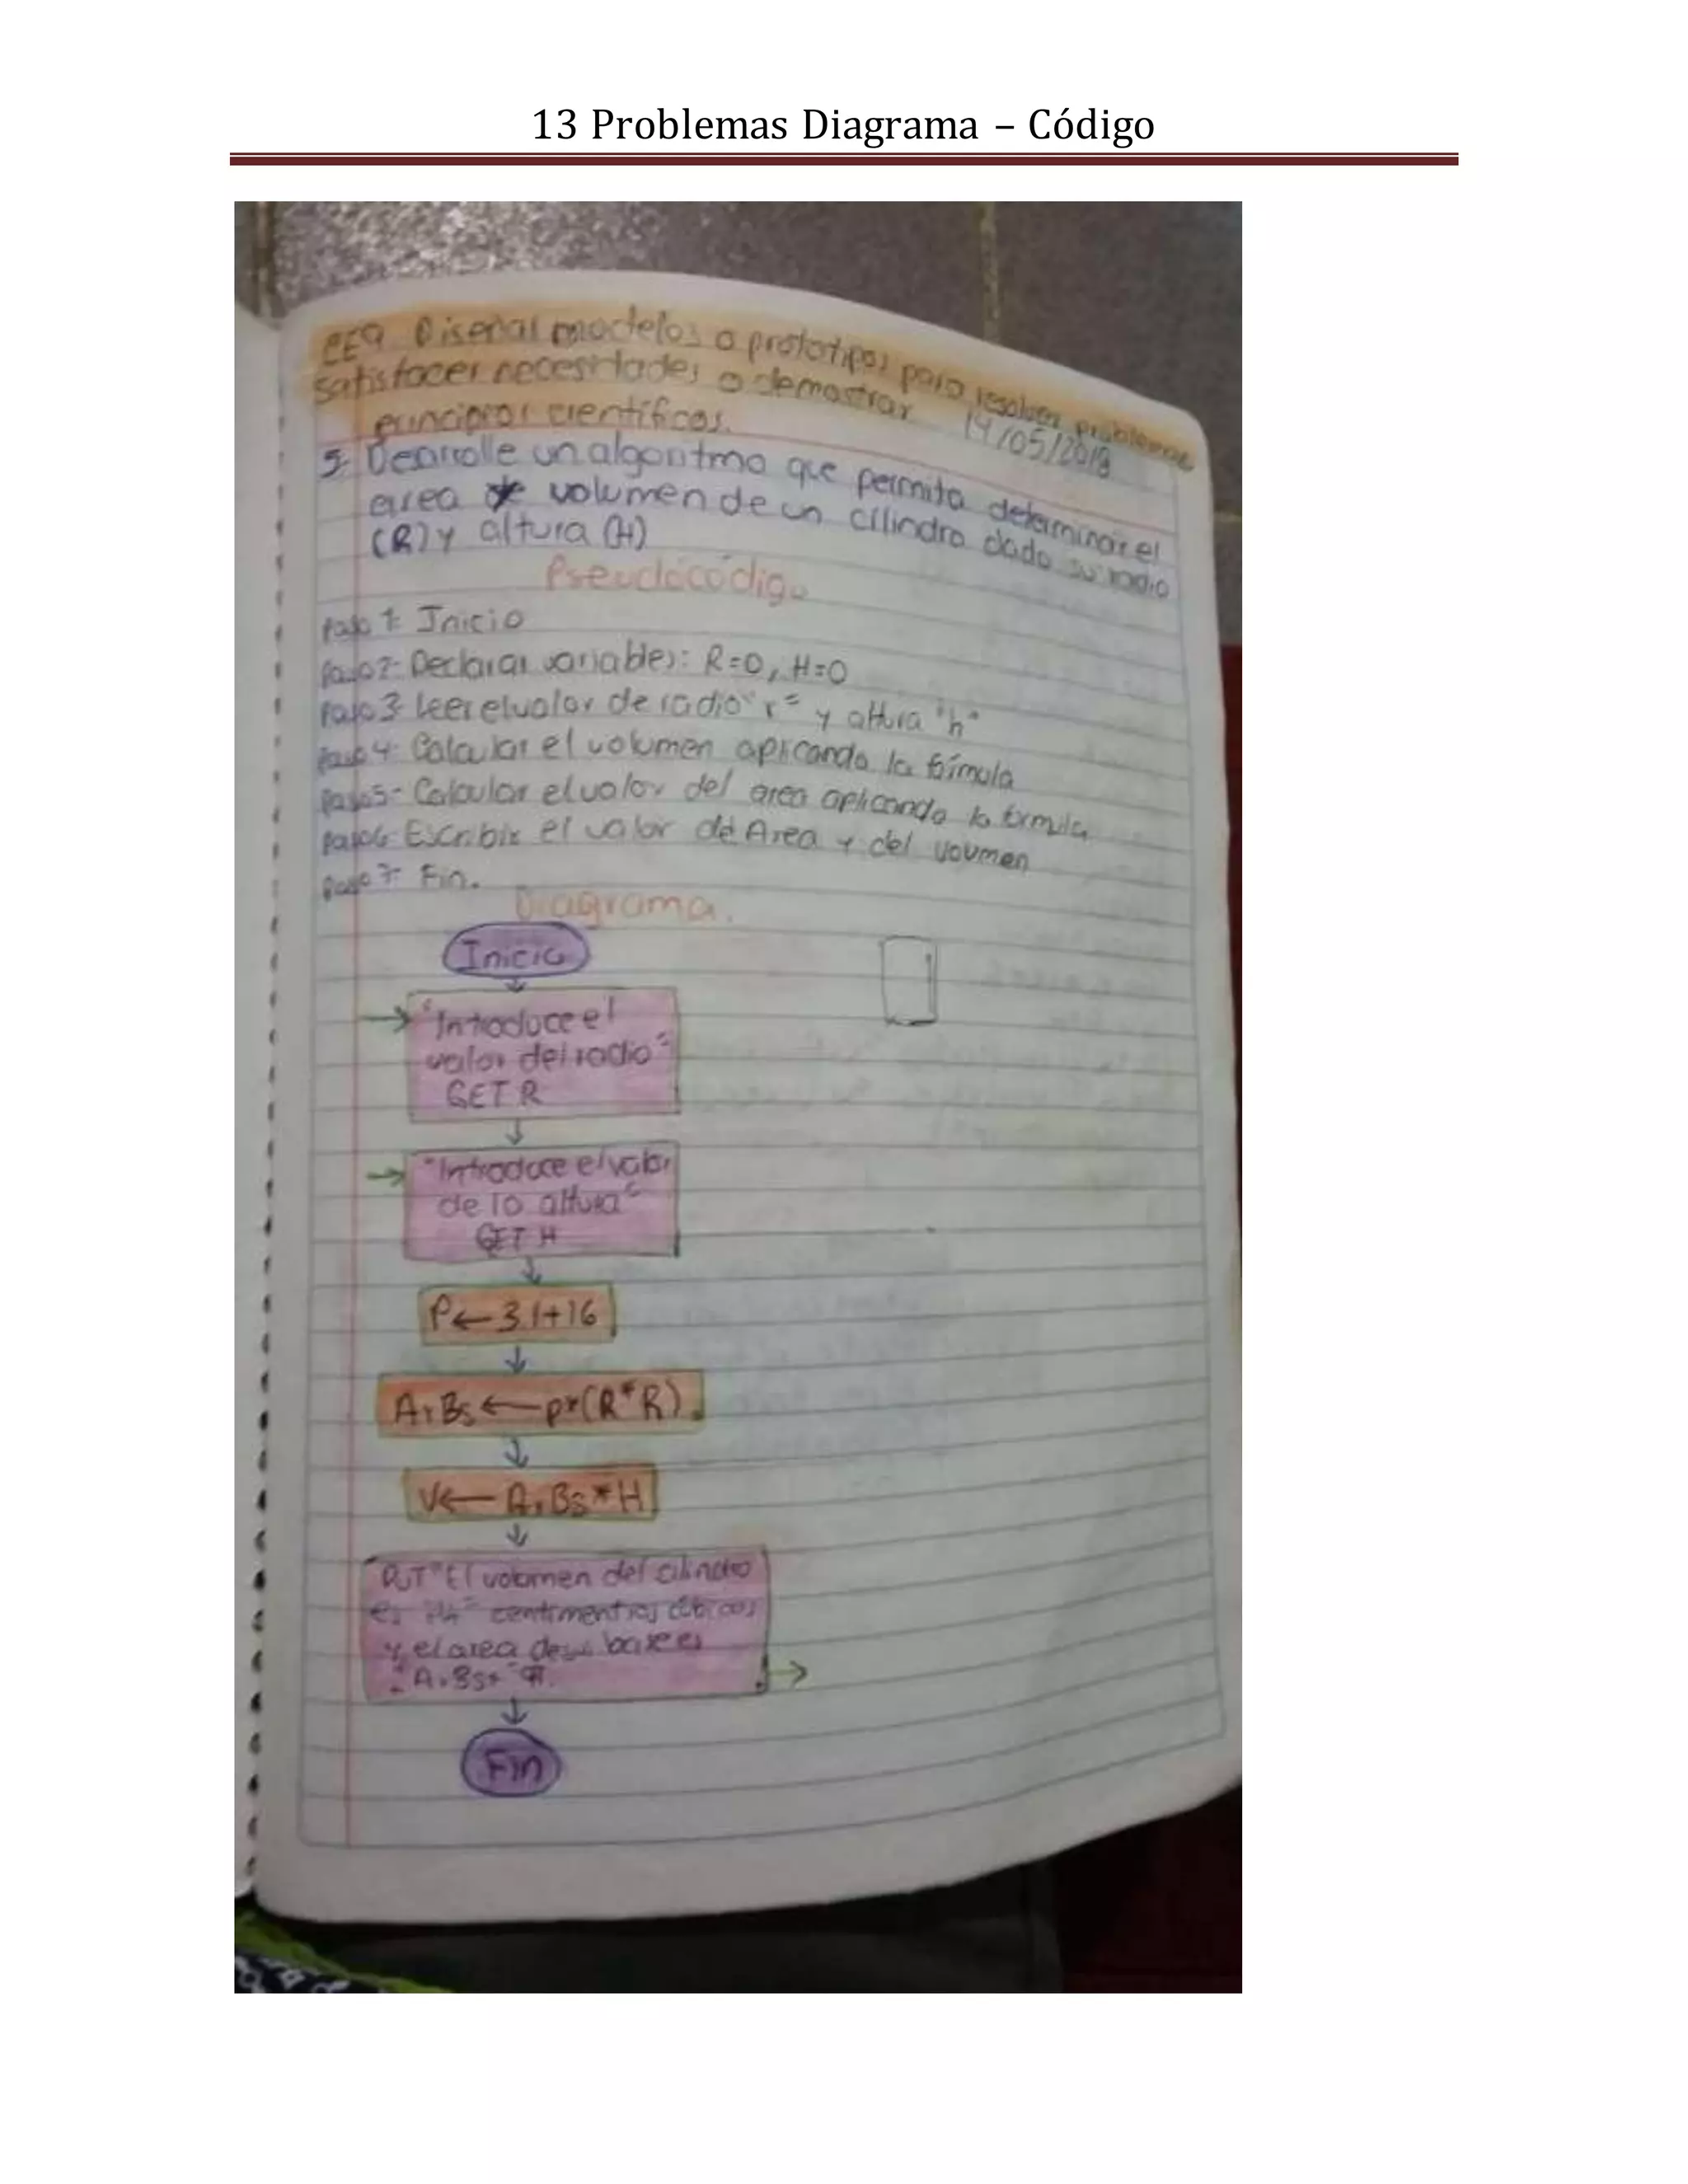 13 Problemas Diagrama – Código
CE9 Diseñar modelos o prototipos para resolver problemas
satisfacer necesidades o demostrar
principios científicos. 14/05/2019
5- Desarrolle un algoritmo que permita determinar el
area de volumen de un cilindro dado su radio
(R) y altura (H)
Pseudocódigo
Paso 1: Inicio
Paso 2- Declarar variables: R=0, H=0
Paso 3- Leer el valor de radio "r" y altura "h"
Paso 4- Calcular el volumen aplicando la fórmula
Paso 5- Calcular el valor del area aplicando la formula
Paso 6- Escribir el valor de Area y del voumen
Paso 7- Fin.
Diagrama.
Inicio
"Introduce el
valor del radio"
GET R
"Introduce el valor
de la altura"
GET H
P←3.1+16
ArBs←p*(R*R)
V←ArBs*H
PUT "El volumen del cilindro
es centimentros cúbicos
y el area de su base es
"ArBs+
Fin